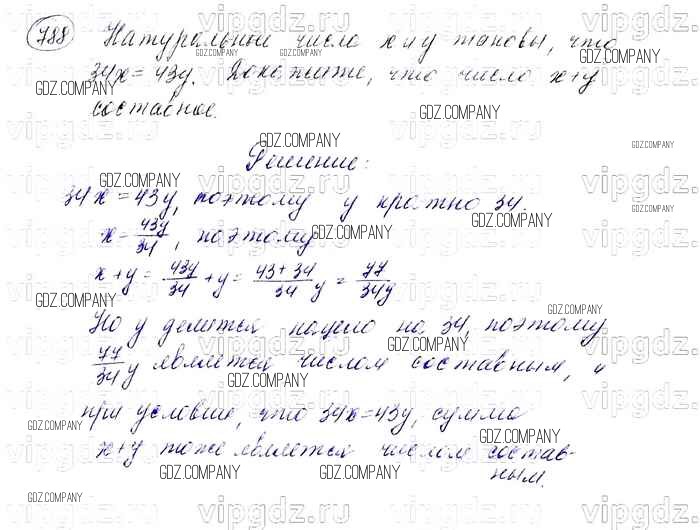 788 Натуральные числа x и y таковы, что
34x = 43y. Докажите, что число x+y
составное.
Решение:
34x = 43y, поэтому y кратно 34.
x = 43y/34, поэтому
x + y = 43y/34 + y = (43 + 34)/34 y = 77/34 y
Но y делится нацело на 34, поэтому
77/34 y является числом составным, и
при условии, что 34x = 43y, сумма
x+y тоже является числом состав-
ным.
GDZ.COMPANY
vipgdz.ru